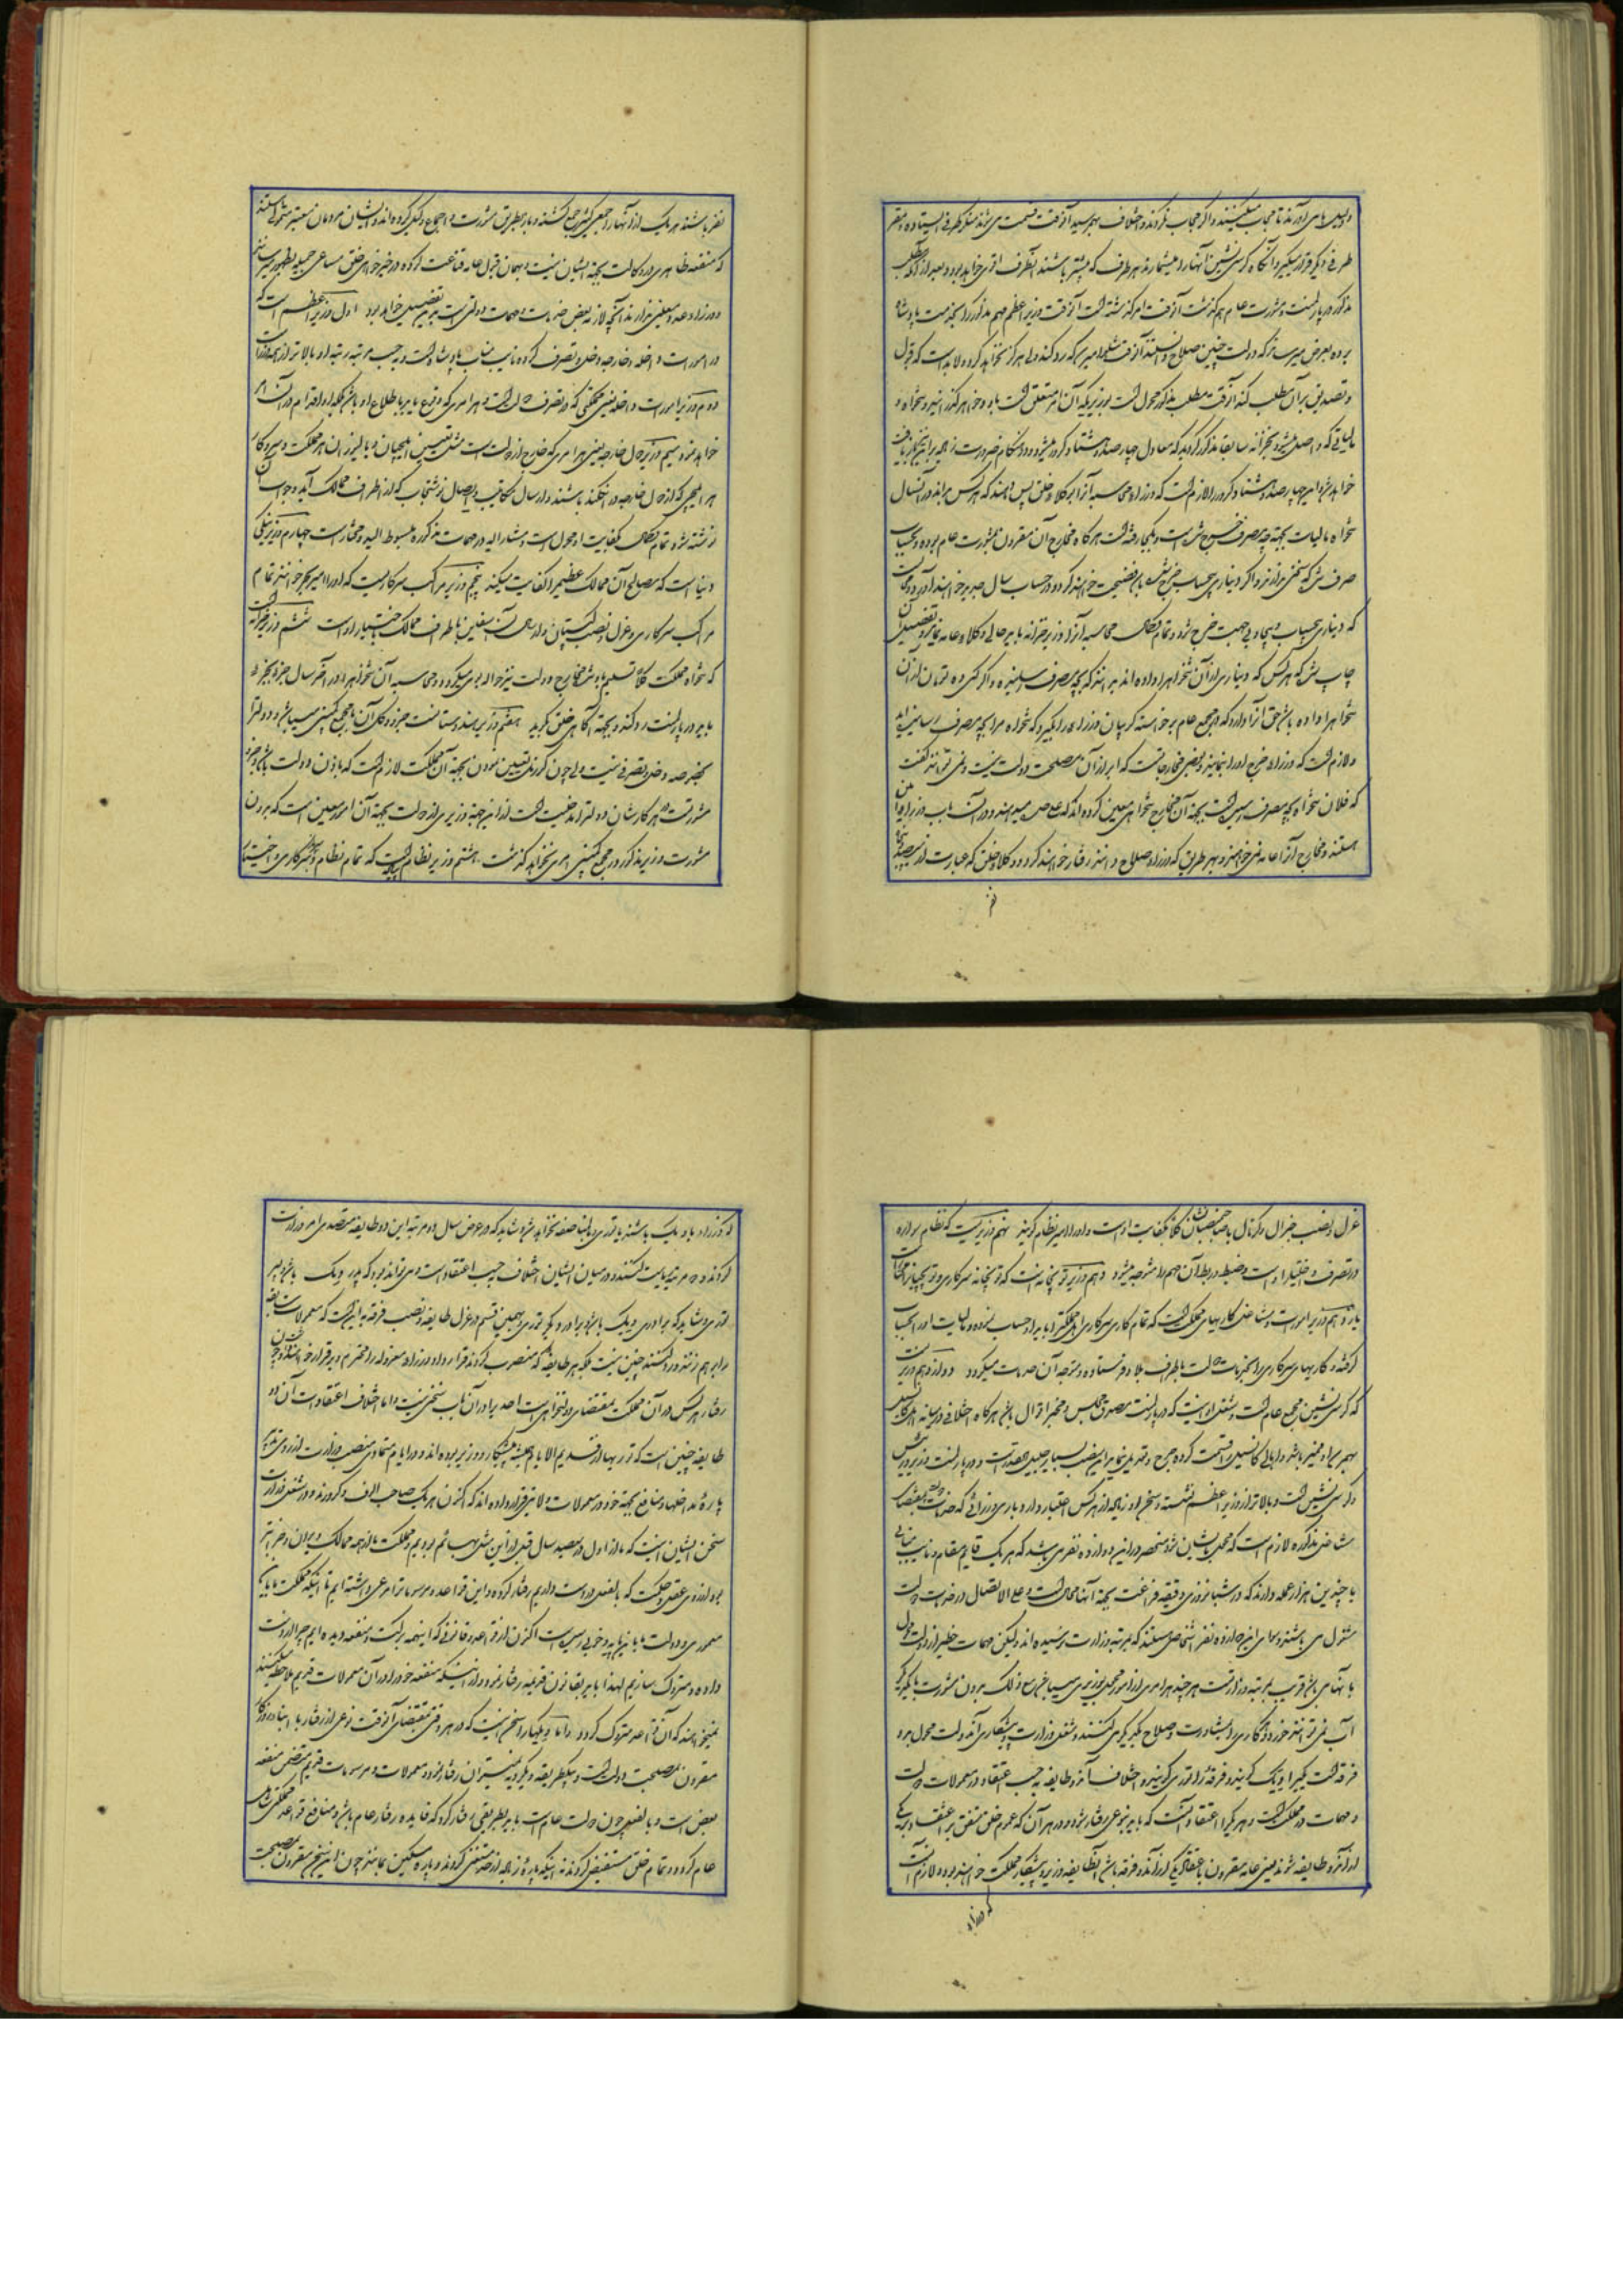 دلیل های آورند تا مجاب میکنند و اگر مجاب نکردند و اختلاف بهم رسید آنوقت قسمت می شوند طرفی ایستاده و مقر
طرفی دیگر قرار میگیرد آنگاه کرسی نشین آنها را میشمارد هر طرف که بیشتر باشند آنطرف اقوی خواهد بود و بعد از آنکه مطلب
مذکور در پارلمنت و مشورت عام هم گذشت آنوقت امر گذشته است آنوقت وزیر اعظم مهم مذکور را بخدمت پادشاه
برده بعرض میرساند که دولت چنین صلاح دانستند آنوقت شاه را میرسد که رد کند ولی هرگز نخواهد کرد و لابد است که قبول
و تصدیق بر آن مطلب کند آنوقت مطلب مذکور محول است بوزیریکه آن امر متعلق است باو و خواهد گذرانید و تنخواه و
مالیاتی که واصل میشود بخزانه سابقا مذکور گردید که معادل چهارصد و هشتاد کرور میشود و در هنگام ضرورت زیاده بر این نیز
خواهد شد و این چهارصد و هشتاد کرور را لازم است که وزراء محاسبه آنرا بوکلاء خلق پس دهند که هر کس بداند در آنسال
تنخواه مالیات بجهته چه مصرف خرج شده است و بکجا رفته است هرگاه مخارج آن مقرون بمشورت عام بوده و بحساب
صرف شد که سخنی ندارند و اگر دیناری بیحساب خرج شده باشد فضیحت خواهند کرد و در حساب سال جدید خواهند آورد
که دیناری بحساب و بیجا و بی جهت خرج نشود و تمام محاسبه آنرا وزیر خزانه باید حالی وکلاء عامه نماید و تفصیل آن
چاپ شد که هر کس که دیناری از آن تنخواه را داده اند بداند که بچه مصرف رسانیده و اگر کسی ده تومان از آن
تنخواه را داده باشد حق آنرا دارد که در مجمع عام برخواسته گریبان وزراء را بگیرد که تنخواه مرا بچه مصرف رسانیده اید
و لازم است که وزراء خرج او را بنمایند و بعضی مخارجات که ابراز آن مصلحت دولت نیست و نمی توانند گفت
که فلان تنخواه بچه مصرف رسیده است بجهته آن مخارج تنخواهی معین کرده اند که علیحده میدهند و در آن باب وزراء امین
هستند و مخارج آنرا عامه نمی خواهند و بهر طریق که وزراء صلاح دانند رفتار خواهند کرد و وکلاء خلق که عبارت از سیصد و پنجاه
نفر
نفر باشند هر یک از آنها را جمعی کثیر جمع گشته و باز بطریق مشورت و اجماع وکیل کرده اند و ایشان مردمان معتبر متمول هستند
که منفعه ظاهری در وکالت بجهته ایشان نیست و بهمان قبول عامه قناعت کرده در خیر خواهی خلق مساعی جمیله بظهور میرسانند
و وزراء عده معینی ندارند آنچه لازمه بعض خدمات و مهمات دولتی است بدین تفصیل خواهد بود اول وزیر اعظم است که
در امورات داخله و خارجه دخل و تصرف کرده نایب مناب پادشاه است و بحسب مرتبه رتبه او بالاتر از همه وزراء است
دوم وزیر امورات داخله یعنی مملکتی که در تصرف دولت است و هر امری که وقوع یابد باطلاع او باشد بلکه او اقدام در آن امر
خواهد نمود سیم وزیر دول خارجه یعنی هر امری که خارج از دولت است مثل تعیین ایلچیان و بالیوزان هر مملکت و سر و کار
هر ایلچی که از دول خارجه در انگلند باشند و ارسال مکاتیب و ایصال نوشتجات که از اطراف ممالک آید و جواب آن
نوشته شود تمام بکفایت او محول است و مشار الیه در مهمات مذکوره مبسوط الید و مختار است چهارم وزیر ینگی
دنیا است که مصالح آن ممالک عظیم را کفایت میکند پنجم وزیر مراکب سرکاریست که او را امیر بحر خوانند تمام
مراکب سرکاری و عزل و نصب کپیتان و ارسال آن سفاین باطراف ممالک باختیار اوست ششم وزیر خزانه است
که تنخواه مملکت کلا تسلیم باو شده مخارج دولت نیز حواله بوی میگردد و محاسبه آن تنخواه را در آخر سال جزء بجزء
باید در پارلمنت رد کند و بجهته آگاهی خلق بگوید هفتم وزیر هندوستانست جزء و کل آن با مجمع کمپنی میباشد و دولت را
بخیر و ضرر دخل و تصرفی نیست ولی چون گورنر تعیین نمودن بجهته آن مملکت لازم است که باذن دولت باشد و بجز
مشورت هر کار شان دولت را مدخلیت است از اینجهته وزیری از دولت بجهته آن امر معین است که بدون
مشورت وزیر مذکور در مجمع کمپنی امری نخواهد گذشت هشتم وزیر نظام است که تمام نظام و لشکر سرکاری و اختیار
عزل و نصب جنرال و کرنال با صاحبمنصبان کلا بکفایت اوست و او را امیر نظام گویند نهم وزیریست که نظام سواره
در تصرف و اختیار اوست و ضبط و ربط آن مهم را متوجه میشود دهم وزیر توپخانه است که توپخانه سرکاری و توپچیان
یازدهم وزیر امورات و مشاغل کاریهای مملکت است که تمام کاری سرکاری اهل مملکت را باید او حساب نموده و مالیات او را بحساب
گرفته و کاریهای سرکاری را بخدمات دولت باطراف بلاد فرستاده متوجه آن خدمات میگردد دوازدهم وزیریست
که کرسی نشین مجمع عام است و شغل او اینست که در پارلمنت مصدق مجلس و مخبر اقوال باشد هرگاه اختلافی در میانه اهل کانسیل
بهم رسد او ممیز باشد و اهالی کانسیل را قسمت کرده جرح و تعدیل نماید این منصب بسیار جلیل القدر است و در پارلمنت وزیر و درویش
و کرسی نشین است و بالاتر از وزیر اعظم نشسته و سخن او زیاده از هر کس اعتبار دارد باری وزرائی که خدمات
مشاغل مذکوره لازم است که محول بایشان شود منحصر در این دوازده نفر می باشد که هر یک قایم مقام و نایب منابی
با چندین هزار عمله دارند که در شبانه روزی دقیقه فراغت بجهته آنها محال است و علی الاتصال در خدمات دولت
مشغول می باشند و سوای این دوازده نفر اشخاصی هستند که بمرتبه وزارت رسیده اند ولیکن مهمات خطیر از دولت محول
بآنها نمی باشد قریب بمرتبه وزارت هر چند هر امری از امور محول بوزیری میباشد مع ذلک بدون مشورت یکدیگر
آب نمی توانند خورد و هر کاری را بمشاورت و صلاح یکدیگر می کنند و شغل وزارت و پیشکاری آندولت محول بدو
فرقه است یکی را ویگ گویند و فرقه را توری گویند و اختلاف آندو طایفه بحسب اعتقاد در معمولات دولت
و مهمات در مملکت است و هر یک را اعتقاد آنست که باید بنوعی رفتار شود و در هر آن که عموم خلق متفق بر اعتقاد یکی
از آندو طایفه شوند یعنی عامه مقرون باعتقاد یکی از آندو فرقه باشد آنطایفه وزیر و پیشکار مملکت خواهند بود و لازم است
که وزراء
که وزراء یا ویگ باشند یا توری و بالمناصفه نخواهد شد و شاید که در عرض سال دو مرتبه این دو طایفه متصدی امر وزارت
گردند و ده مرتبه ریاست کنند و در میان ایشان اختلاف بحسب اعتقاد است و می تواند بود که پدر ویگ باشد و پسر
توری و شاید که برادری ویگ باشد و برادر کوچکتر توری و همین قسم در عزل طایفه و نصب فرقه نه اینست که معمولات سابقه
را بر هم زنند و رد کنند چنین نیست بلکه هر طایفه که منصوب گردند قرارداد وزراء معزول را محترم و برقرار خواهند داشت و چون
رفتار هر کس در آن مملکت بمقتضای دلخواه است احدیرا در آن باب سخنی نیست و اما اختلاف اعتقادات آن دو
طایفه چنین است که توریها از قدیم الایام همیشه پیشکار و وزیر بوده اند و در ایام متمادی منصب وزارت از روی تدبیر
پاره مداخلها و منافع بجهته خود در معمولات ولایتی قرار داده اند که اکنون هر یک صاحب الوف و کرورند و در شغل وزارت
سخن ایشان اینست که ما از اول در سیصد سال قبل از این مشتی بهائم بودیم و مملکت ما از همه ممالک ویران و خراب تر
بود از روی عقل و حکمت که بالفعل در دست داریم رفتار کرده و این قواعد و مرسومات را مرعی داشته ایم تا اینکه مملکت باین
معموری و دولت ما باین پایه و خوبی رسیده است اکنون از قواعد و قانونی که اینهمه برکت و منفعه دیده ایم چرا از دست
داده و متروک سازیم لهذا باید بقانون قدیمه رفتار نمود و از اینکه منفعه خود را در آن معمولات قدیم ملاحظه میکنند
نمیخواهند که آن قواعد متروک گردد و اما ویگها را سخن اینست که در هر وقتی بمقتضای آنوقت نوعی از رفتار با ابناء روزگار
مقرون بمصلحت دولت است و بیکطریقه و یکرویه نمیتوان رفتار نمود و معمولات و مرسومات قدیم متضمن منفعه
بعض است و بالفعل چون دولت عام است باید بطریقی رفتار کرد که فایده رفتار عام باشد و منافع قواعد مملکتی شامل
عام گردد و تمام خلق مستفیض گردند نه اینکه پاره زیاده از حد مستغنی گردند و پاره مسکین بمانند چون این سخن مقرون بمصلحت